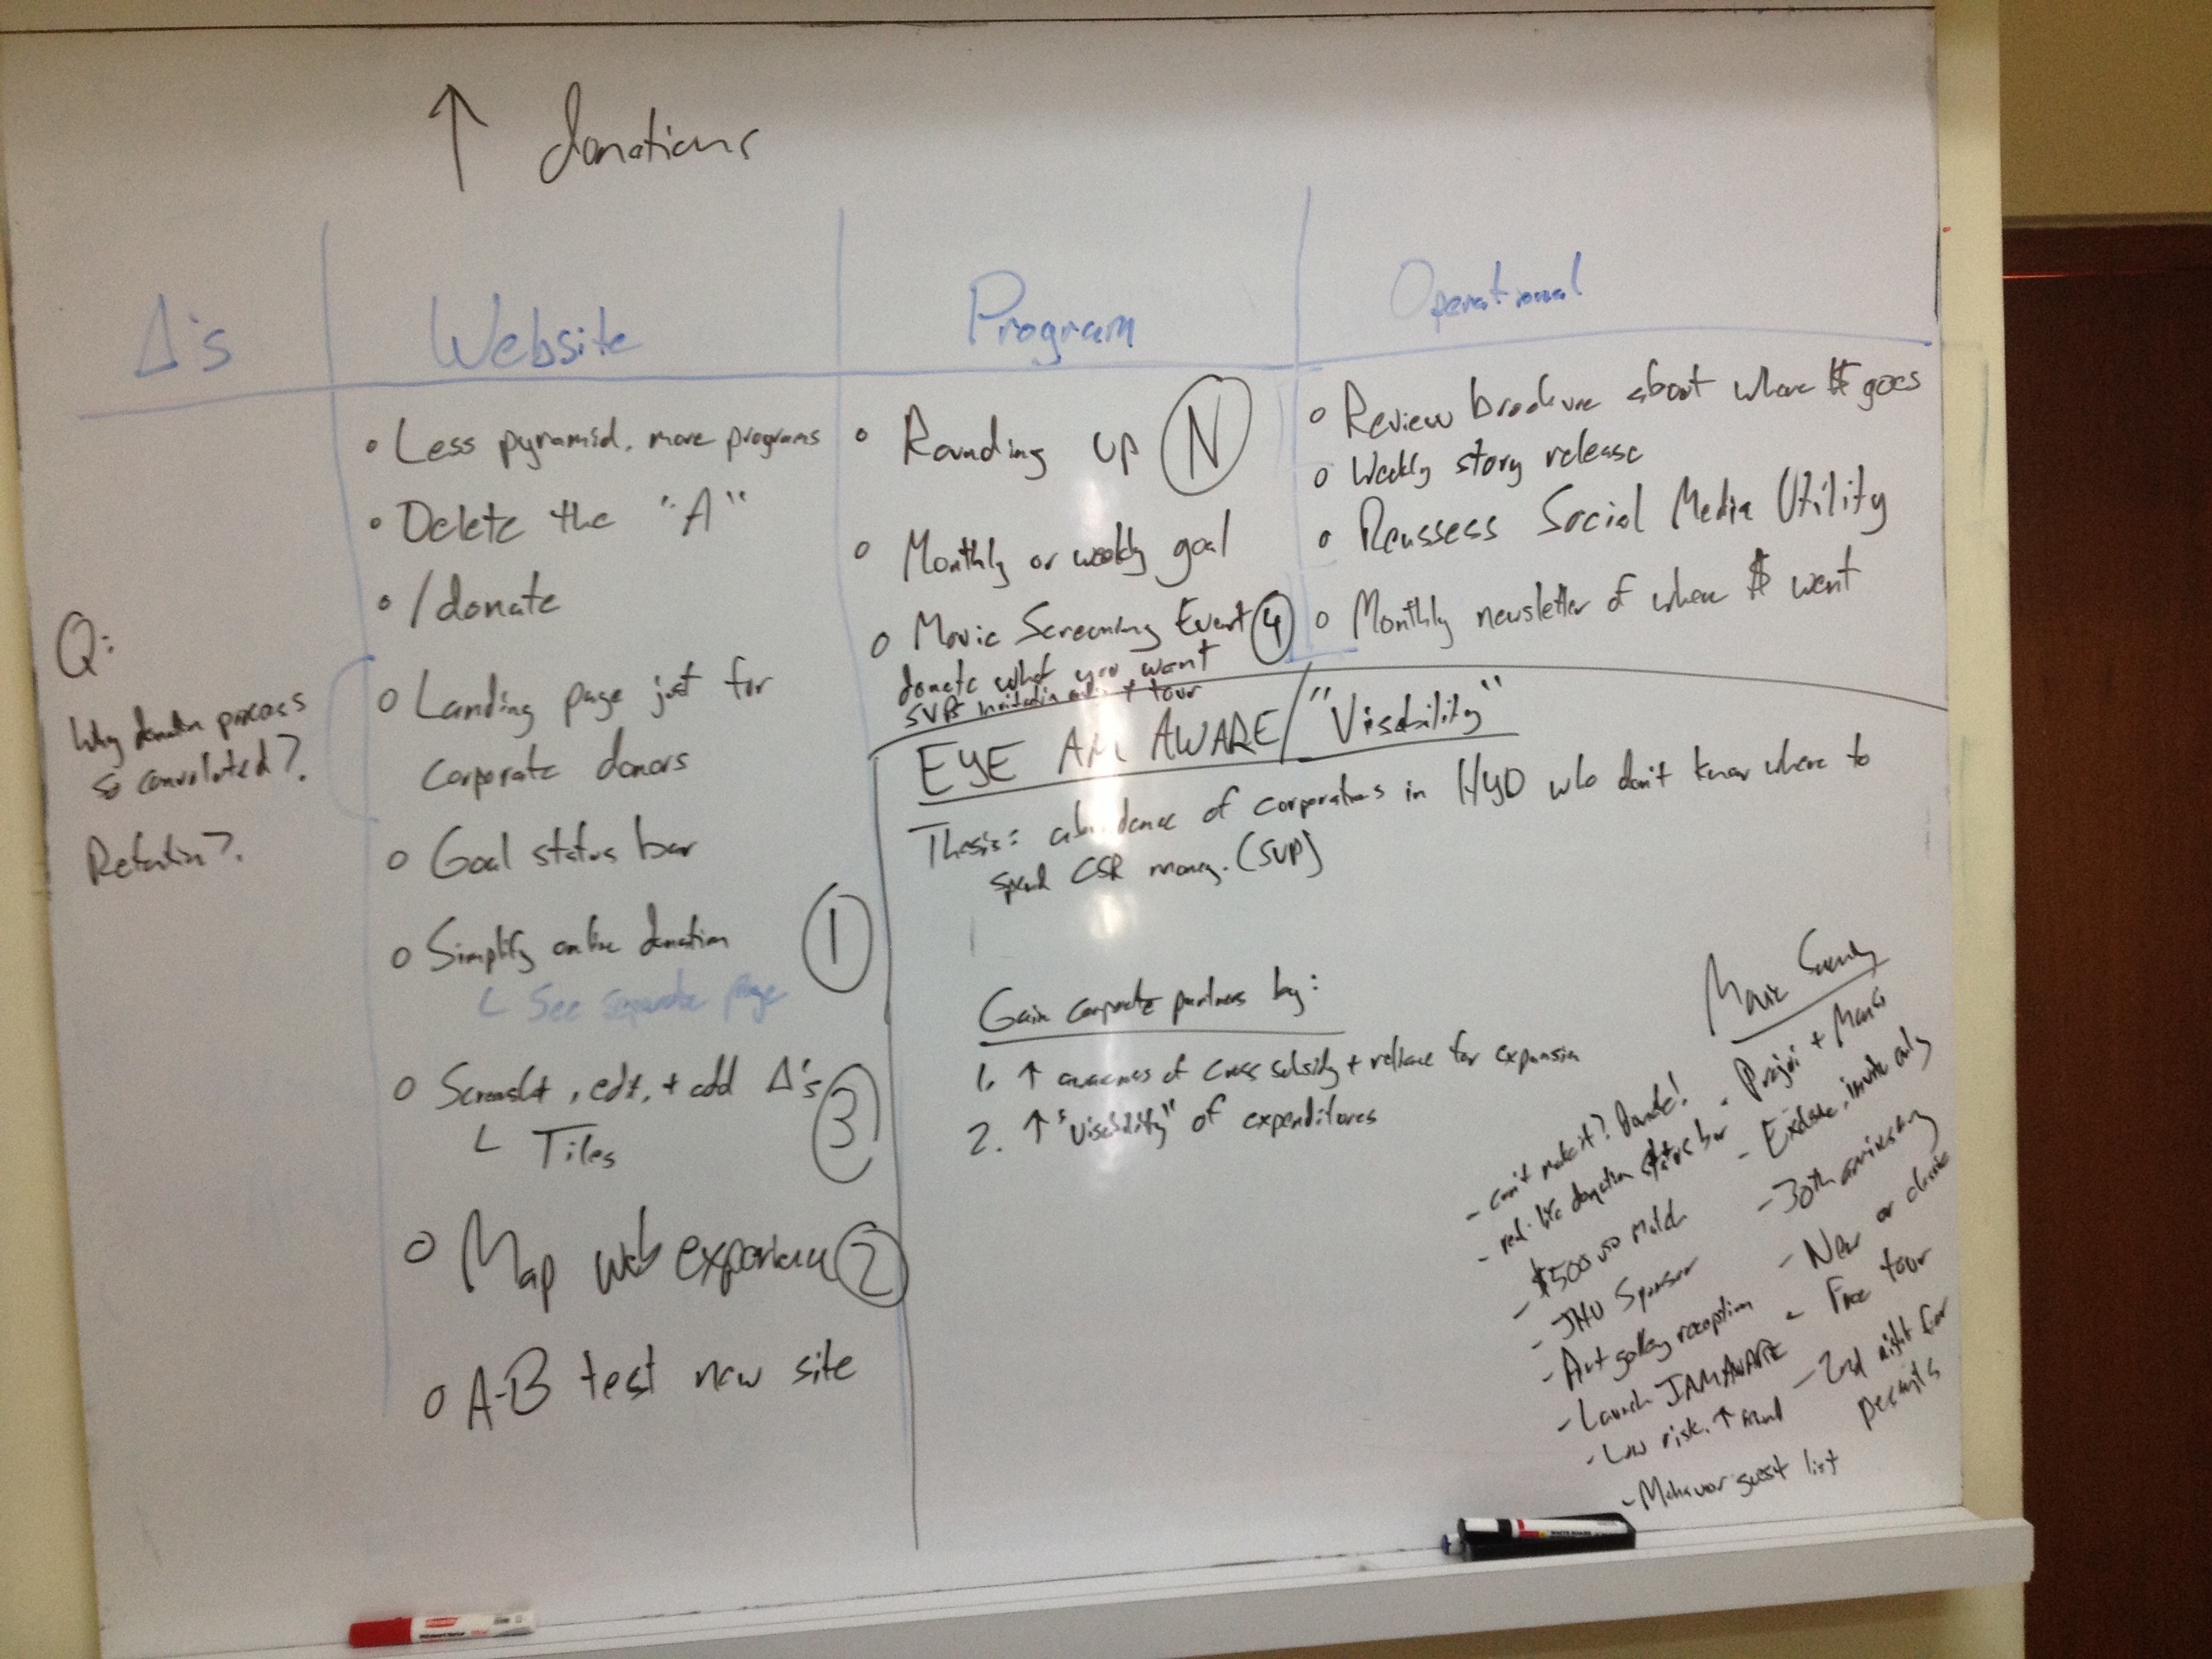 ↑ donations
Δ's
Website
Program
Operational
Q:
Why donation process
so convoluted?
Retention?
• Less pyramid, more programs
• Delete the "A"
• /donate
○ Landing page just for
corporate donors
○ Goal status bar
○ Simplify online donation ①
└ See separate page
○ Screenshot, edit, + add Δ's ③
└ Tiles
○ Map web experience ②
○ A-B test new site
○ Rounding up Ⓝ
○ Monthly or weekly goal
○ Movie Screening Event ④
donate what you want
SVPs invitation only + tour
○ Review brochure about where $ goes
○ Weekly story release
○ Reassess Social Media Utility
○ Monthly newsletter of where $ went
EYE AM AWARE/"Visability"
Thesis: abundance of corporations in HYD who don't know where to
spend CSR money. (SVP)
Gain corporate partners by:
1. ↑ awareness of cross subsidy + reliance for expansion
2. ↑ "Visability" of expenditures
Movie
- can't make it? Donate!
- real-life donation status bar
- $500 match
- JHU Sponsor
- Art gallery reception
- Launch IAMAWARE
- Low risk, ↑
- guest list
- +
- Exclusive, invite only
- 30th anniversary
- New or classic
- Free tour
- 2nd night for